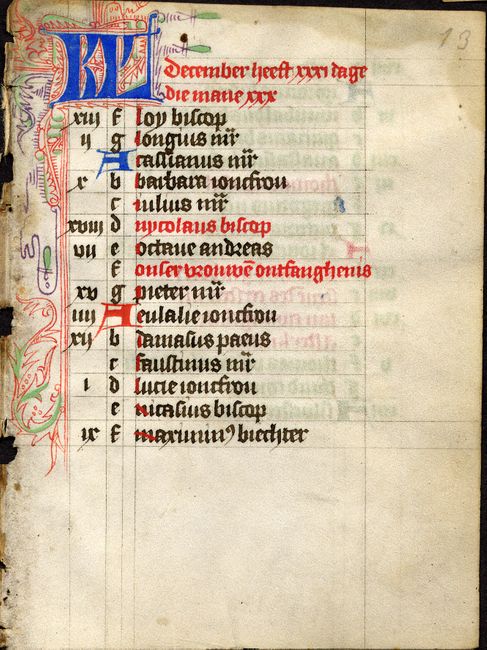 13
KL
December heeft xxxi dage
die mane xxx
xiii f loy biscop
ii g longius mr̄
A cassianus mr̄
x b barbara ioncfrou
c iulius mr̄
xviii d nycolaus biscop
vii e octaue andreas
f onser vrouwē ontfanghenis
xv g pieter mr̄
iiii A eulalie ioncfrou
xii b damasus paeus
c faustinus mr̄
i d lucie ioncfrou
e nicasius biscop
ix f maximinꝰ biechter